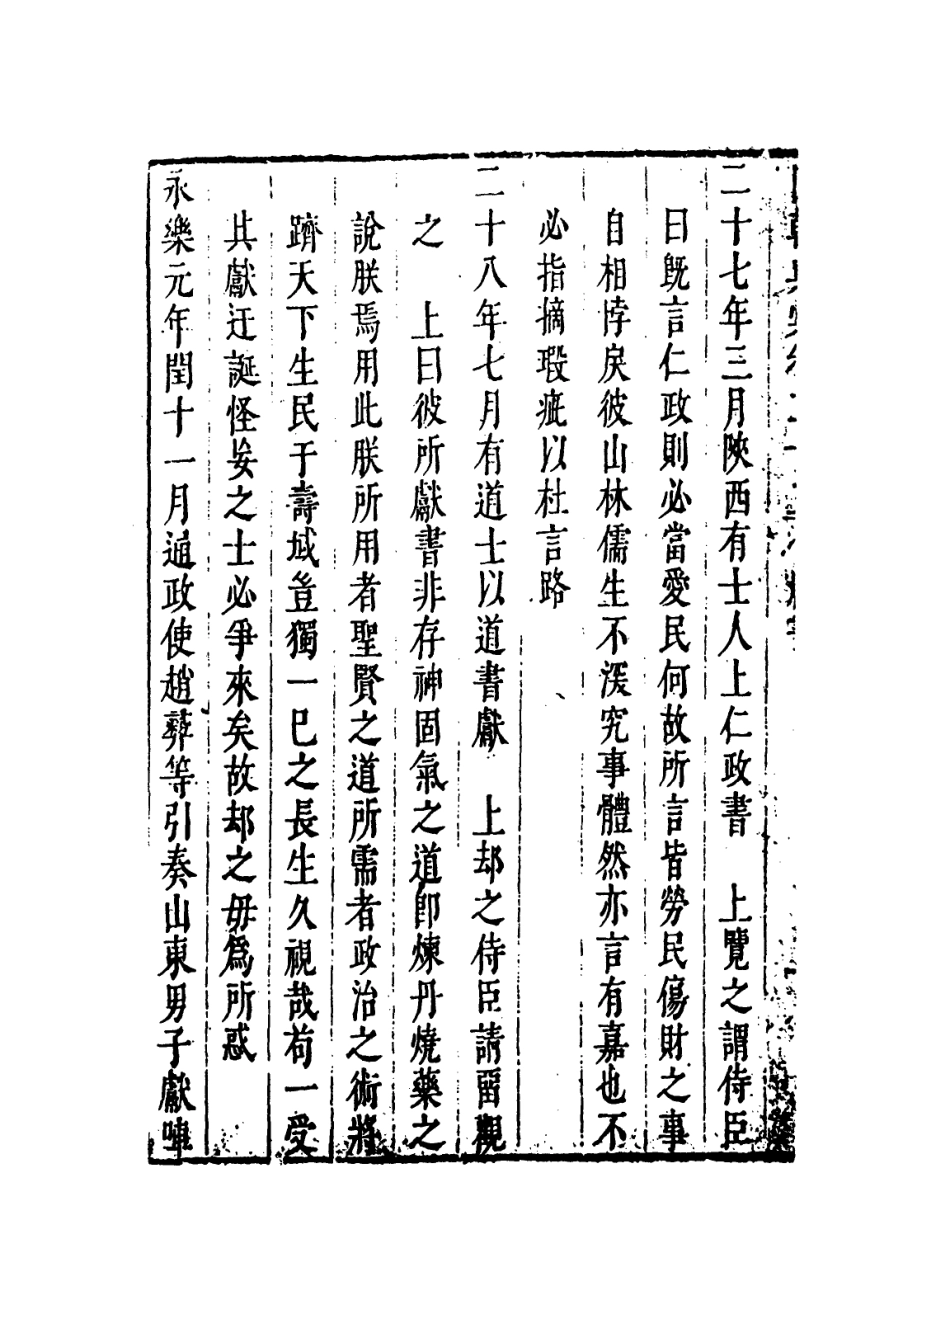 二十七年三月陝西有士人上仁政書　上覽之謂侍臣
曰旣言仁政則必當愛民何故所言皆勞民傷財之事
自相悖戾彼山林儒生不深究事體然亦言有嘉也不
必指摘瑕疵以杜言路
二十八年七月有道士以道書獻　上却之侍臣請留觀
之　上曰彼所獻書非存神固氣之道卽煉丹燒藥之
說朕焉用此朕所用者聖賢之道所需者政治之術將
躋天下生民于壽域豈獨一己之長生久視哉苟一受
其獻迂誕怪妄之士必爭來矣故却之毋爲所惑
永樂元年閏十一月通政使趙彝等引奏山東男子獻陣